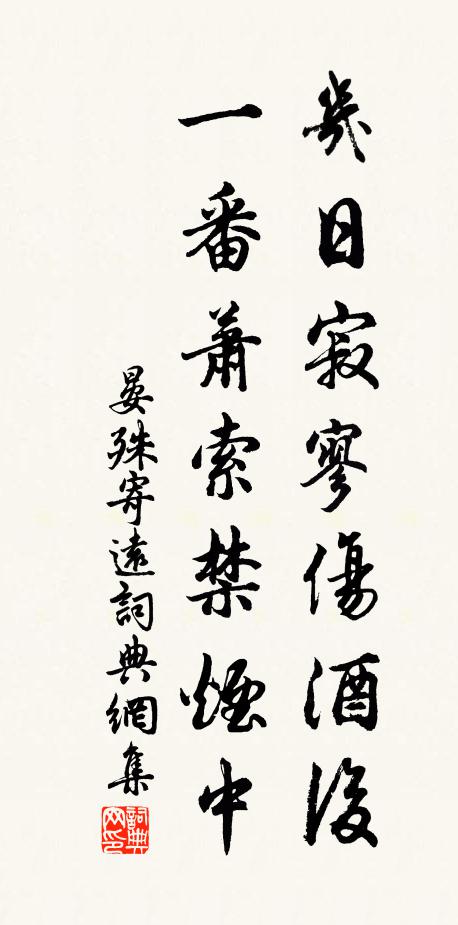 幾日寂寥傷酒後
一番蕭索禁煙中
晏殊寄遠詞典網集
詞典網印